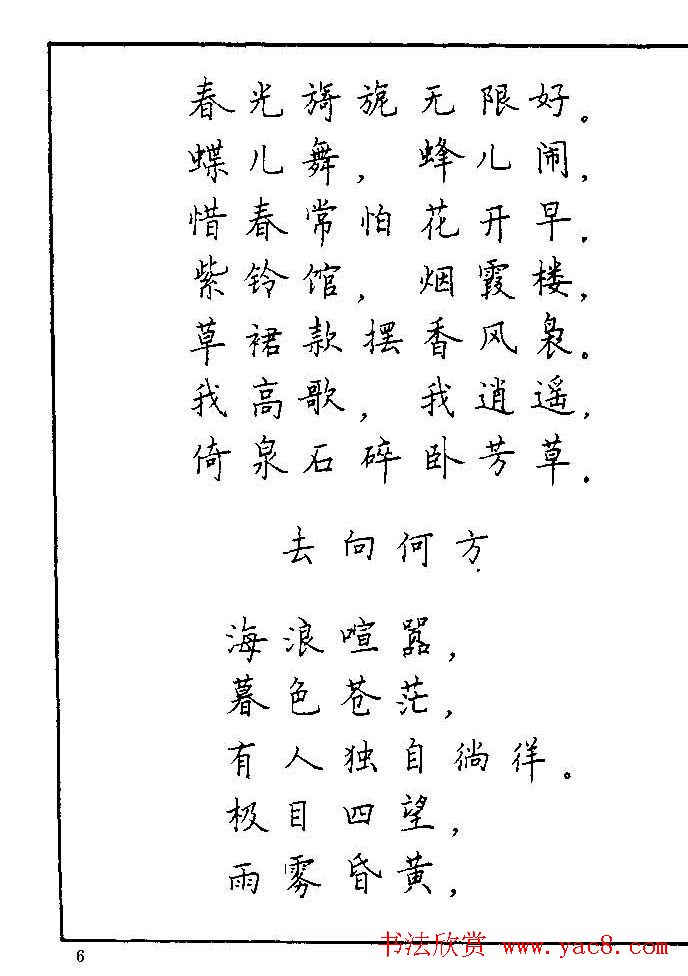 春光旖旎无限好。
蝶儿舞，蜂儿闹，
惜春常怕花开早．
紫铃馆，烟霞楼，
草裙款摆香风袅。
我高歌，我逍遥，
倚泉石碎卧芳草．
去向何方
海浪喧嚣，
暮色苍茫，
有人独自徜徉。
极目四望，
雨雾昏黄，
6
书法欣赏 www.yac8.com